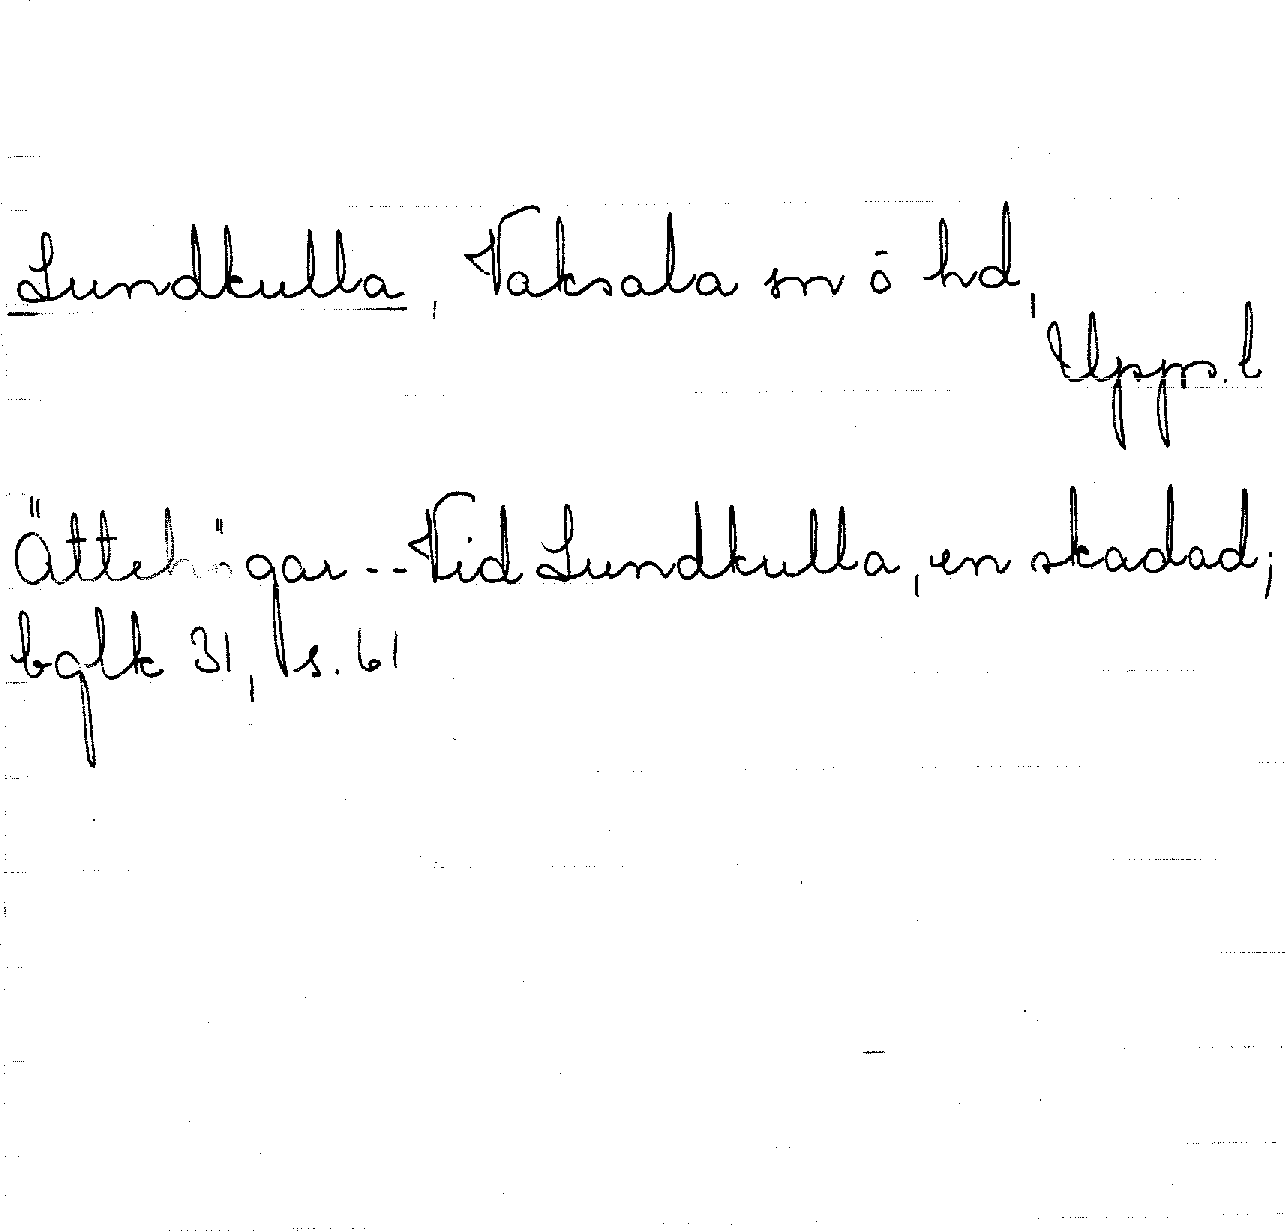 Lundkulla, Vaksala sn ö hd,
Upps. l
Ättehögar -- Vid Lundkulla, en skadad;
bglk 31, s. 61